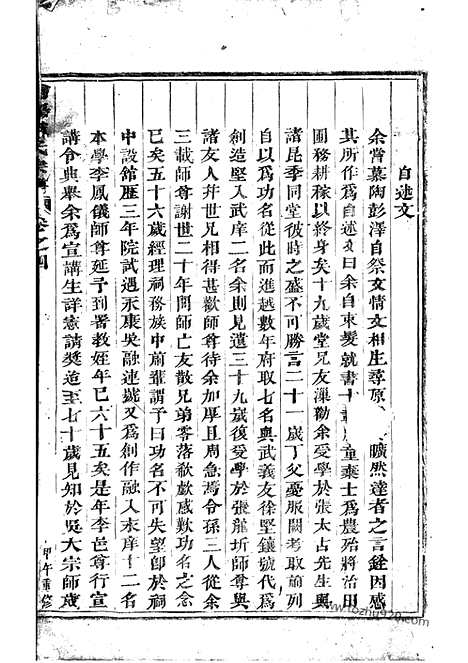 自述文
余嘗慕陶彭澤自祭文情文相生尋原、曠然達者之言銓因感
其所作爲自述文曰余自束髮就書十童棄士爲農殆將治田
圃務耕稼以終身矣十九歲堂兄友瀍勸余受學於張太占先生與
諸昆季同堂彼時之盛不可勝言二十一歲丁父憂服闋考取前列
自以爲功名從此而進越數年府取七名與武義友徐堅鑲號代爲
創造堅入武庠二名余則見遺三十九歲復受學於張龍圻師尊與
諸友人幷世兄相得甚歡師尊待余加厚且周急焉令孫三人從余
三載師尊謝世二十年間師亡友散兄弟零落欷歔感歎功名之念
已矣五十六歲經理祠務族中前輩謂予曰功名不可失望卽於祠
中設館歷三年院試遇永康吳融連歲又爲創作融入末庠十二名
本學李鳳儀師尊延予到署教姪年已六十五矣是年李邑尊行宣
講令典舉余爲宣講生詳憲請奬造至七十歲見知於吳大宗師歲
卷之四
甲午重修